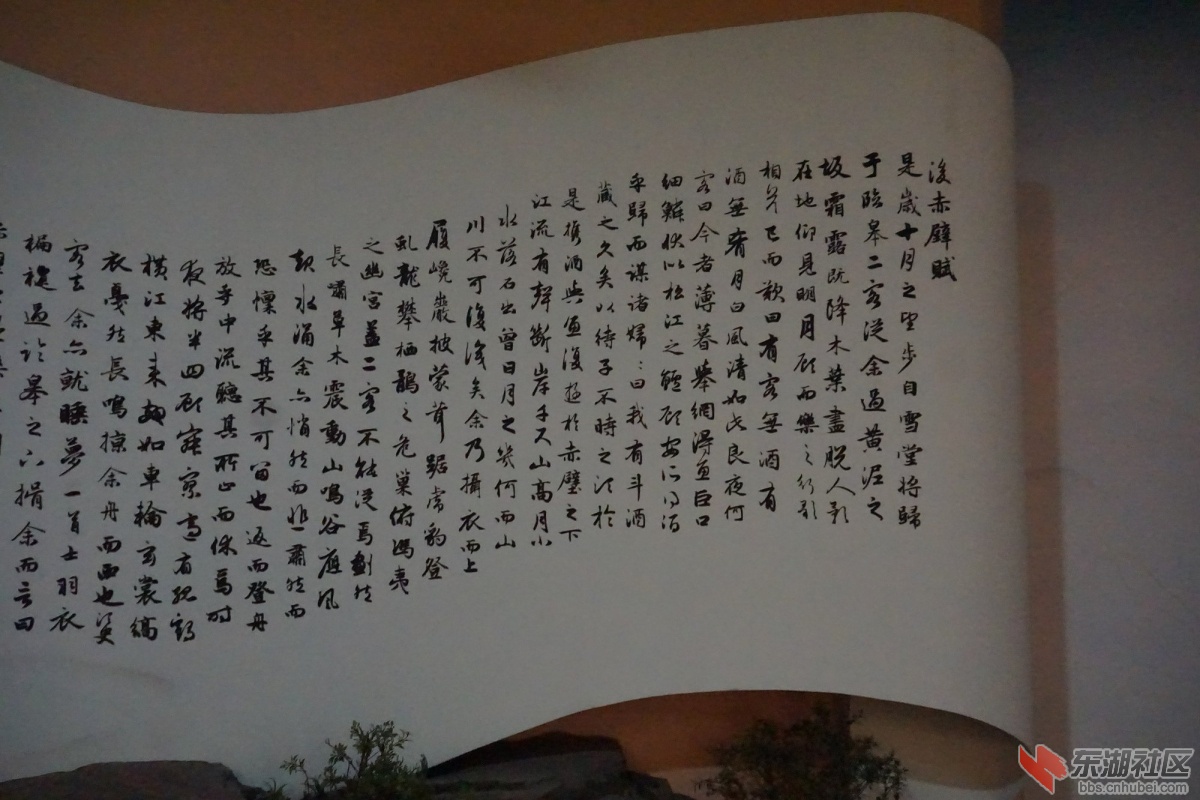 後赤壁賦
是歲十月之望步自雪堂將歸
于臨皋二客從余過黃泥之
坂霜露既降木葉盡脫人影
在地仰見明月顧而樂之行歌
相答已而歎曰有客無酒有
酒無肴月白風清如此良夜何
客曰今者薄暮舉網得魚巨口
細鱗狀似松江之鱸顧安所得酒
乎歸而謀諸婦〻曰我有斗酒
藏之久矣以待子不時之須於
是攜酒與魚復遊於赤壁之下
江流有聲斷岸千尺山高月小
水落石出曾日月之幾何而山
川不可復識矣余乃攝衣而上
履巉巖披蒙茸踞虎豹登
虬龍攀栖鶻之危巢俯馮夷
之幽宮蓋二客不能從焉劃然
長嘯草木震動山鳴谷應風
起水涌余亦悄然而悲肅然而
恐懍乎其不可留也返而登舟
放乎中流聽其所止而休焉時
夜將半四顧寂寥適有孤鶴
橫江東來翅如車輪玄裳縞
衣戛然長鳴掠余舟而西也須臾
客去余亦就睡夢一道士羽衣
蹁躚過臨皋之下揖余而言曰
东湖社区
bbs.cnhubei.com